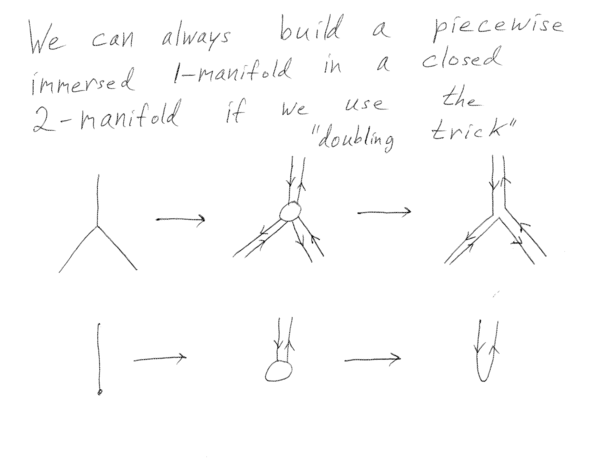 We can always build a piecewise
immersed 1-manifold in a closed
2-manifold if we use the
"doubling trick"